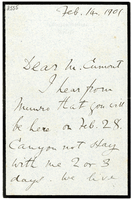 Feb. 14. 1901
Dear M. Cumont
I hear from
Munro that you will
be here on Feb. 28.
Can you not stay
with me 2 or 3
days. We live